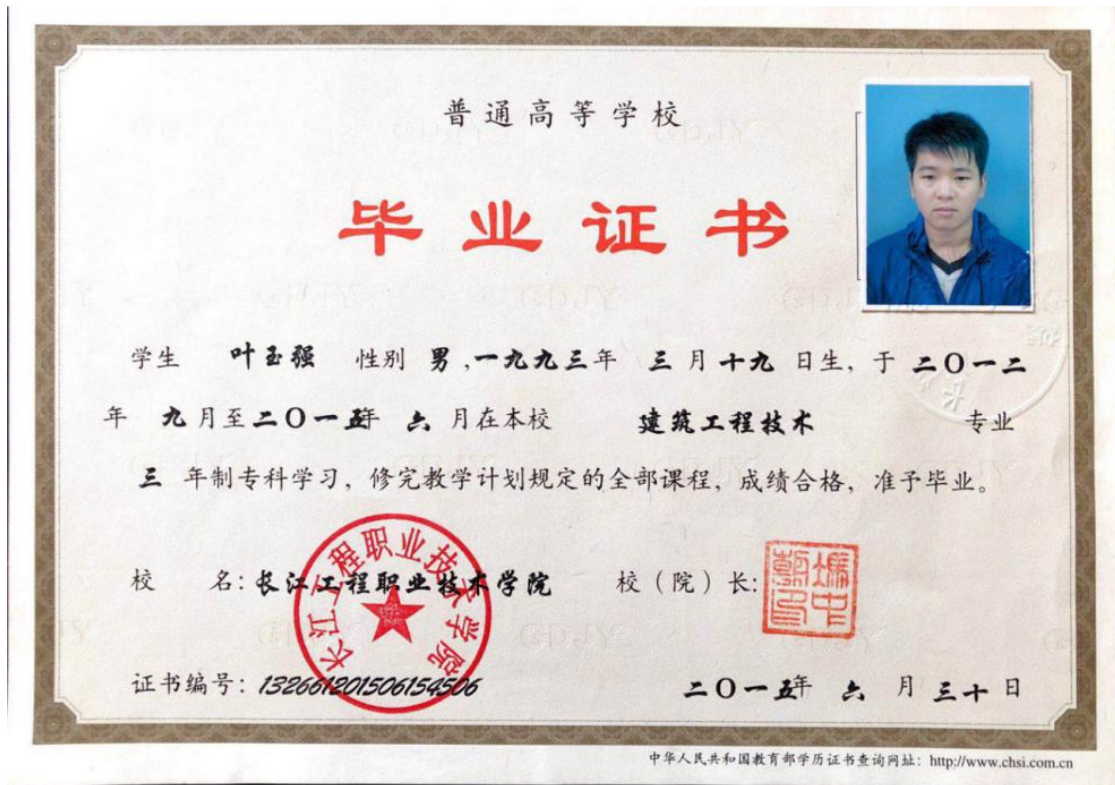 普通高等学校
毕业证书
学生 叶玉强 性别 男,一九九三年 三月十九日生,于二〇一二
年 九月至二〇一五年 六月在本校 建筑工程技术 专业
三 年制专科学习,修完教学计划规定的全部课程,成绩合格,准予毕业。
长江工程职业技术学院
校 名:长江工程职业技术学院 校(院)长:
证书编号:132661201506154506 二〇一五年 六月三十日
中华人民共和国教育部学历证书查询网址:http://www.chsi.com.cn